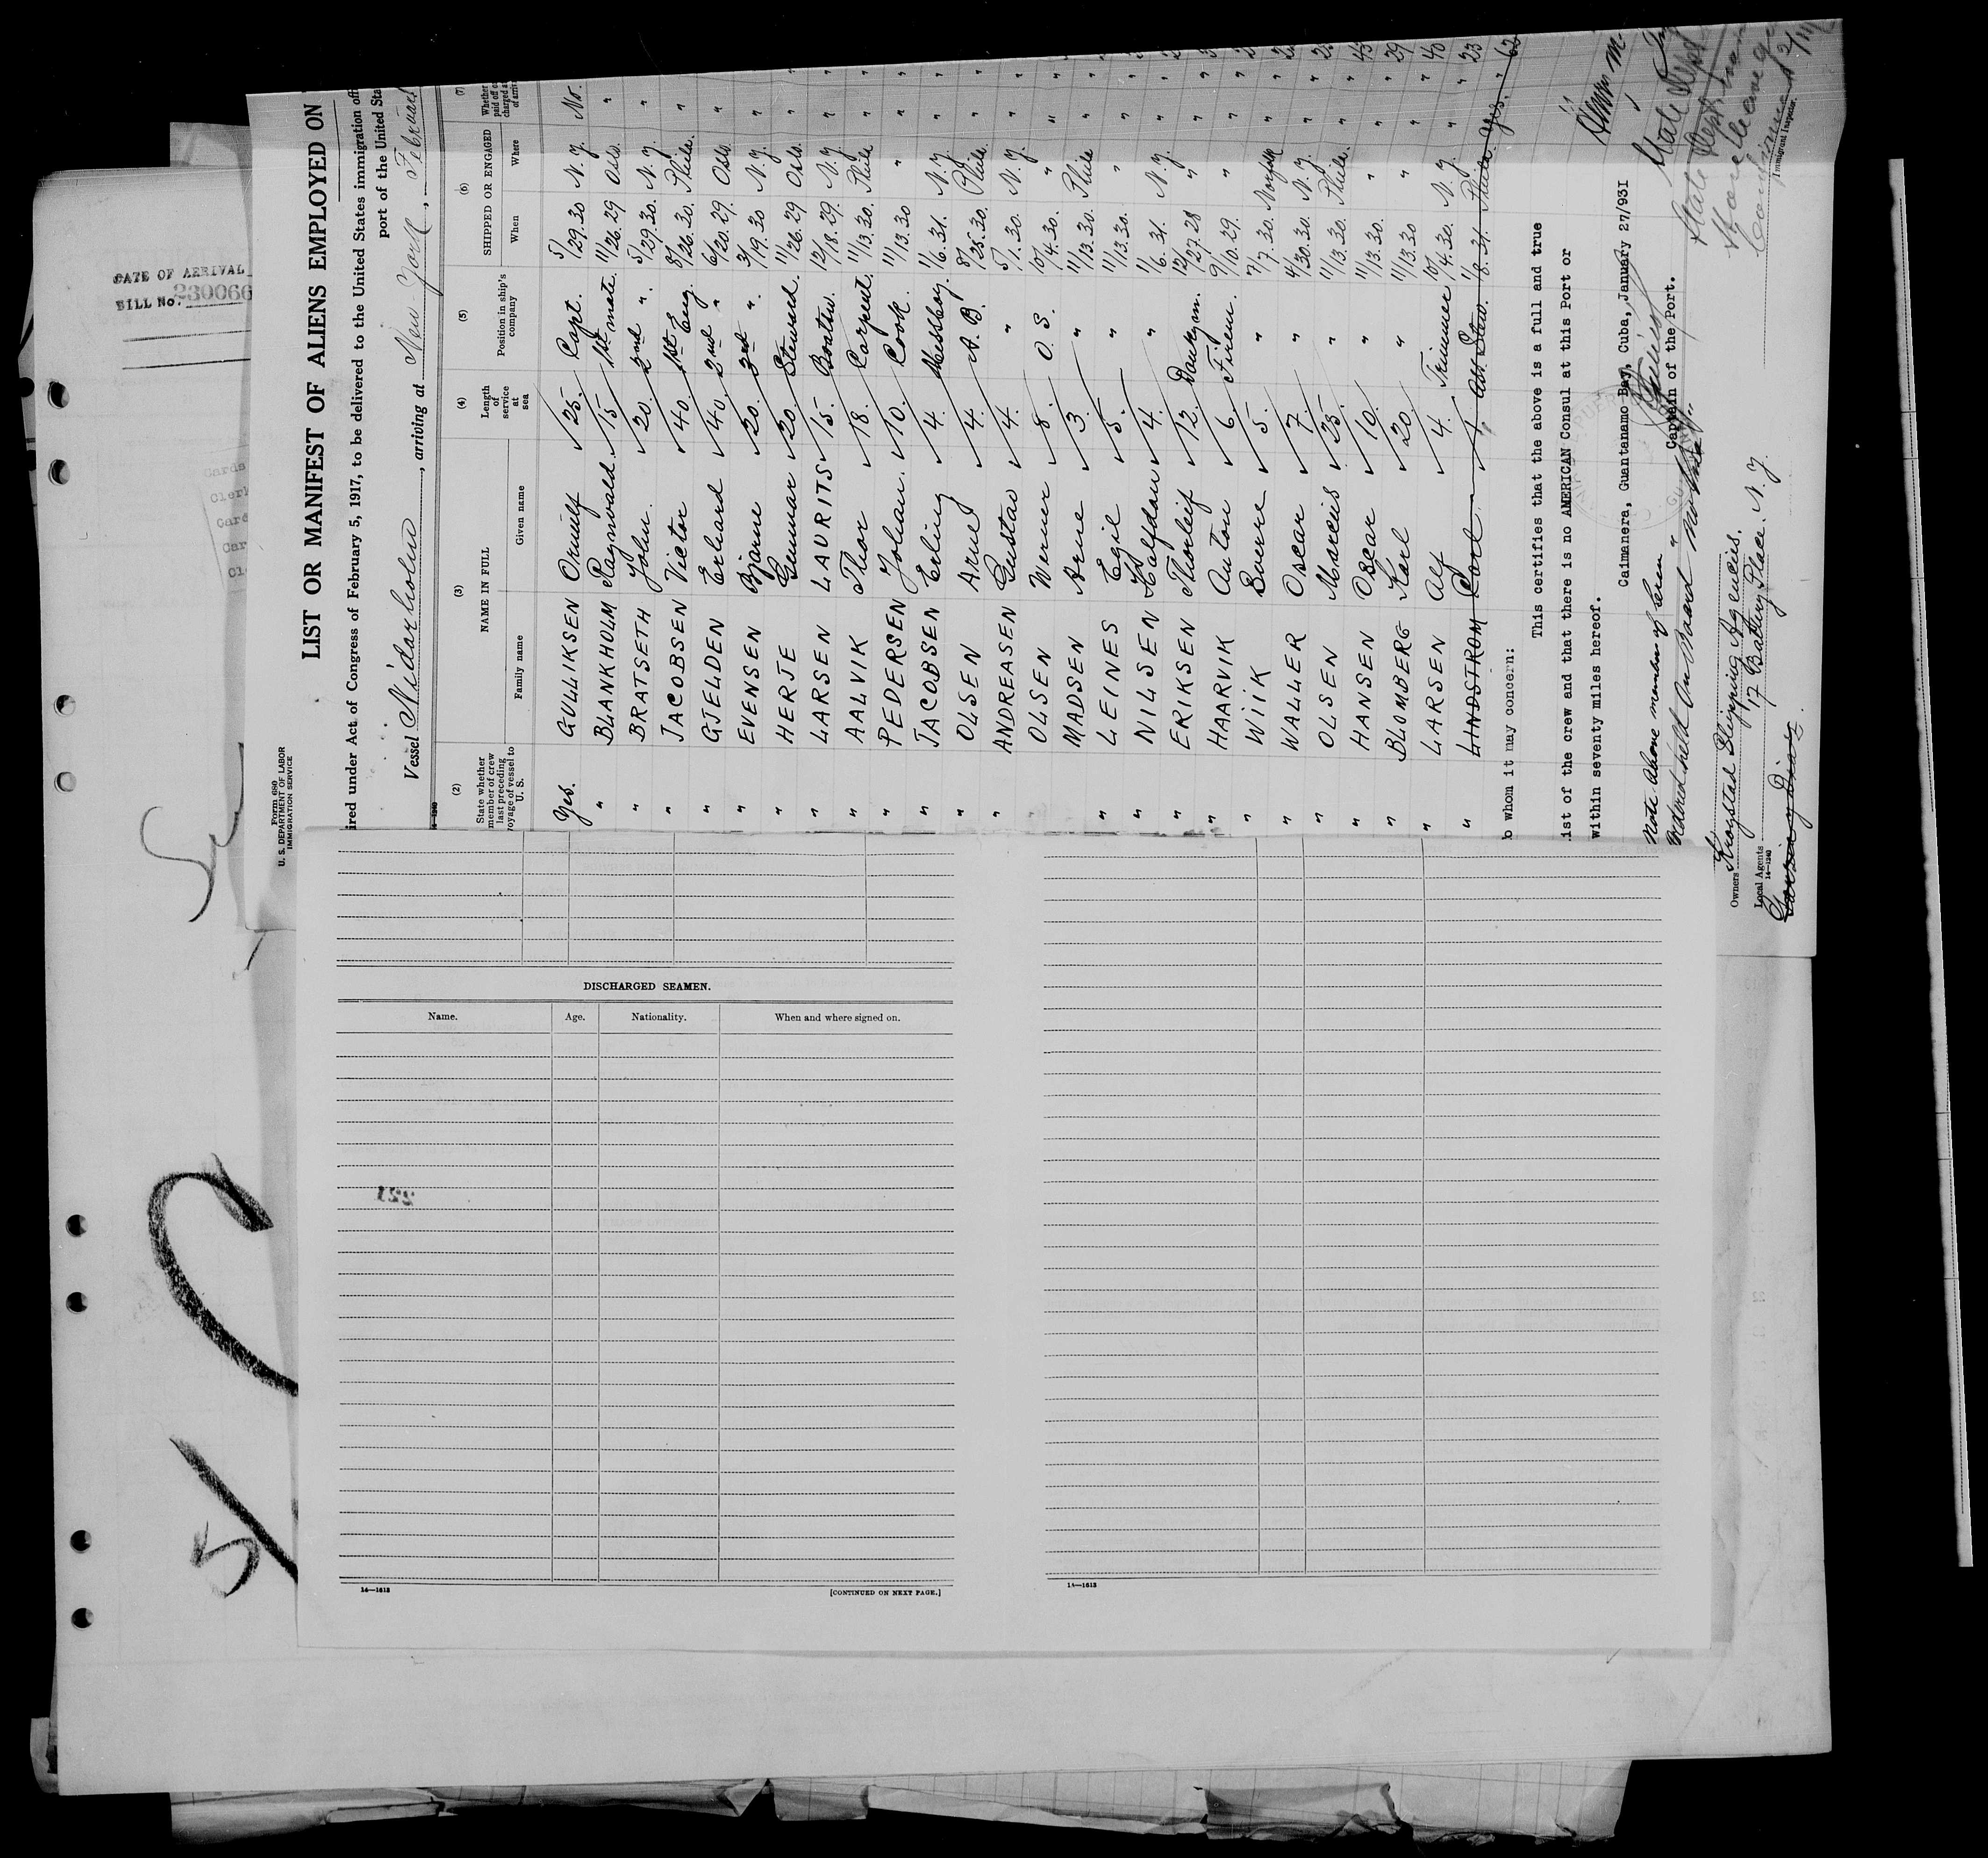 DATE OF ARRIVAL
BILL No. 230066
Form 680
U. S. DEPARTMENT OF LABOR
IMMIGRATION SERVICE
LIST OR MANIFEST OF ALIENS EMPLOYED ON
ired under Act of Congress of February 5, 1917, to be delivered to the United States immigration off
port of the United Sta
Vessel Nidarholm, arriving at New York, Februar
(2) (3) (4) (5) (6) (7)
State whether member of crew last preceding voyage of vessel to U. S.
NAME IN FULL
Family name Given name
Length of service at sea
Position in ship's company
SHIPPED OR ENGAGED
When Where
Yes. GULLIKSEN Ornulf 25. Capt. 5/29.30 N.Y. No.
" BLANKHOLM Ragnvald 15 1st mate. 11/26.29 Oslo. "
" BRATSETH John. 20. 2nd ". 5/29.30. N.Y. "
" JACOBSEN Victor 40. 1st Eng. 8/26.30. Phila. "
" GJELDEN Erhard 40. 2nd " 6/20.29. Oslo. "
" EVENSEN Bjarne 20. 3rd ". 3/19.30 N.Y. "
" HERTE Gunnar 20. Steward. 11/26.29 Oslo. "
" LARSEN LAURITS 15. Boatsw. 12/18.29. N.Y. "
" AALVIK Thor 18. Carpent. 11/13.30. Phila "
" PEDERSEN Johan. 10. Cook. 11/13.30 " "
" JACOBSEN Erling 4. Messboy. 1/6.31. N.Y. "
" OLSEN Arne 4. A.B. 8/25.30. Phila. "
" ANDREASEN Gustav 4. " 5/1.30. N.Y. "
OLSEN Werner 8. O.S. 10/4.30. " "
MADSEN Arne 3. " 11/13.30. Phila "
" LEINES Egil 5. " 11/13.30. " "
" NILSEN Halfdan 4. " 1/6.31. N.Y. "
" ERIKSEN Thorleif 12. Donkeym. 12/27.28 " "
" HAARVIK Anton 6. Firem. 9/10.29. " "
" WIIK Sverre 5. " 7/7.30. Norfolk "
" WALLER Oscar 7. " 4/30.30. N.Y. "
" OLSEN Marcus 25. " 11/13.30. Phila. "
" HANSEN Oscar 10. " 11/13.30. " " 43
" BLOMBERG Karl 20. " 11/13.30 " " 29
" LARSEN Alf 4. Trimmer 10/4.30. N.Y. " 40
" LINDSTROM Carl 1. Asst. Stew. 1/8.31. Phila. Yes. " 23
o whom it may concern:
This certifies that the above is a full and true
ist of the crew and that there is no AMERICAN Consul at this Port or
within seventy miles hereof.
Caimanera, Guantanamo Bay, Cuba, January 27/931
Captain of the Port.
Note above member of crew
ordered held on board
State Dept
State Dept
Immigrant Inspector.
Owners Krogstad Shipping Agencies.
17 Battery Place. N.Y.
Local Agents
14—1240
DISCHARGED SEAMEN.
Name. Age. Nationality. When and where signed on.
14—1613
[CONTINUED ON NEXT PAGE.]
14—1613
5